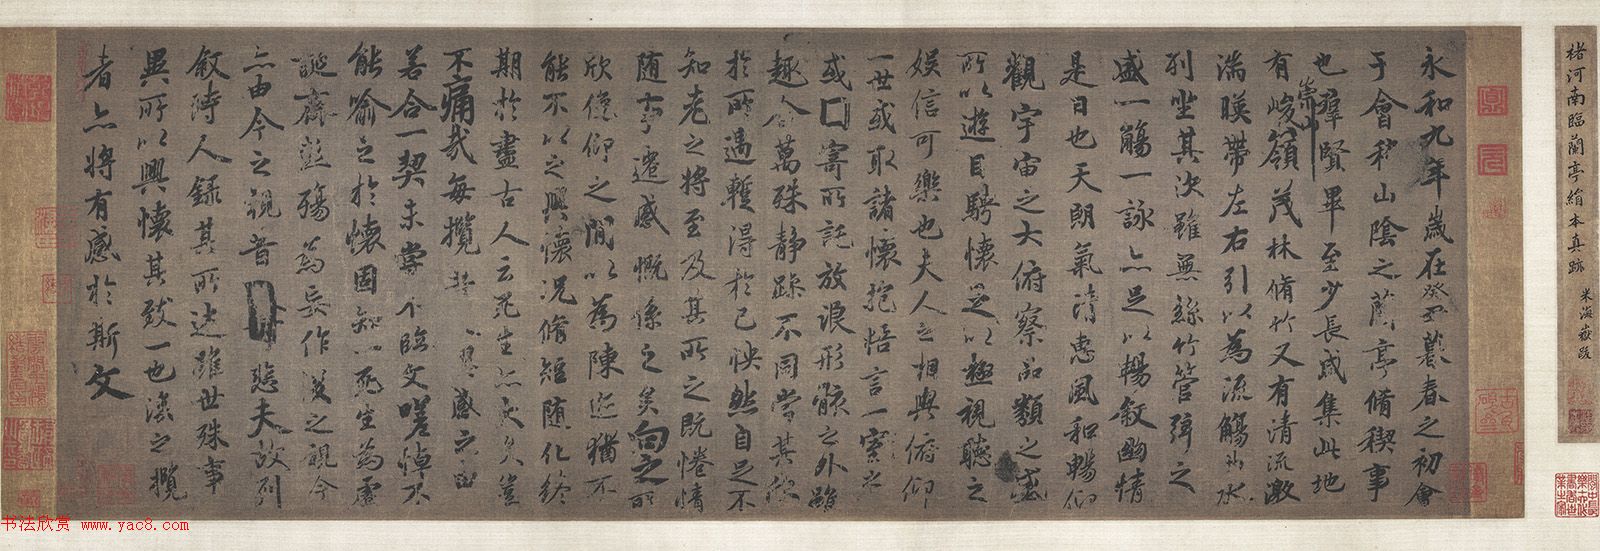 楮河南臨蘭亭絹本真跡 米海嶽跋
永和九年歲在癸丑暮春之初會
于會稽山陰之蘭亭脩稧事
也羣賢畢至少長咸集此地
有崇山峻嶺茂林脩竹又有清流激
湍暎帶左右引以為流觴曲水
列坐其次雖無絲竹管弦之
盛一觴一詠亦足以暢敘幽情
是日也天朗氣清惠風和暢仰
觀宇宙之大俯察品類之盛
所以遊目騁懷足以極視聽之
娛信可樂也夫人之相與俯仰
一世或取諸懷抱悟言一室之
或寄所託放浪形骸之外雖
趣舍萬殊靜躁不同當其欣
於所遇蹔得於己怏然自足不
知老之將至及其所之既惓情
隨事遷感慨係之矣向之所
欣俛仰之間以為陳迹猶不
能不以之興懷況脩短隨化終
期於盡古人云死生亦大矣豈
不痛哉每攬昔興感之由
若合一契未嘗不臨文嗟悼不
能喻之於懷固知一死生為虛
誕齊彭殤為妄作後之視今
亦由今之視昔悲夫故列
敘時人錄其所述雖世殊事
異所以興懷其致一也後之攬
者亦將有感於斯文
书法欣赏 www.yac8.com